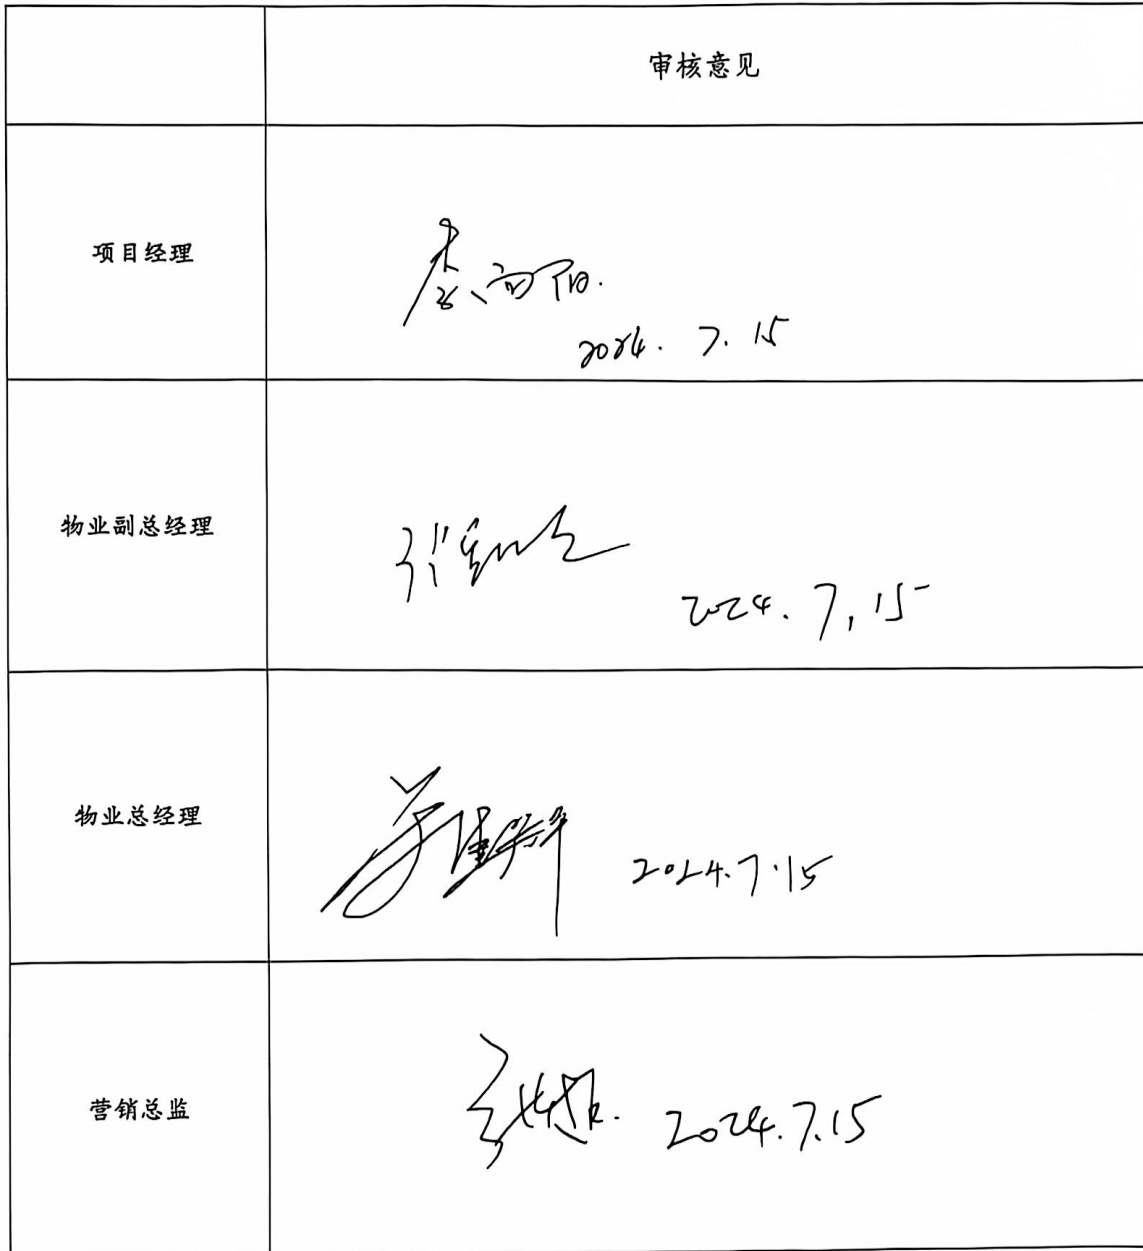 审核意见
项目经理
李向阳.
2024. 7. 15
物业副总经理
2024. 7, 15
物业总经理
2024.7.15
营销总监
2024.7.15